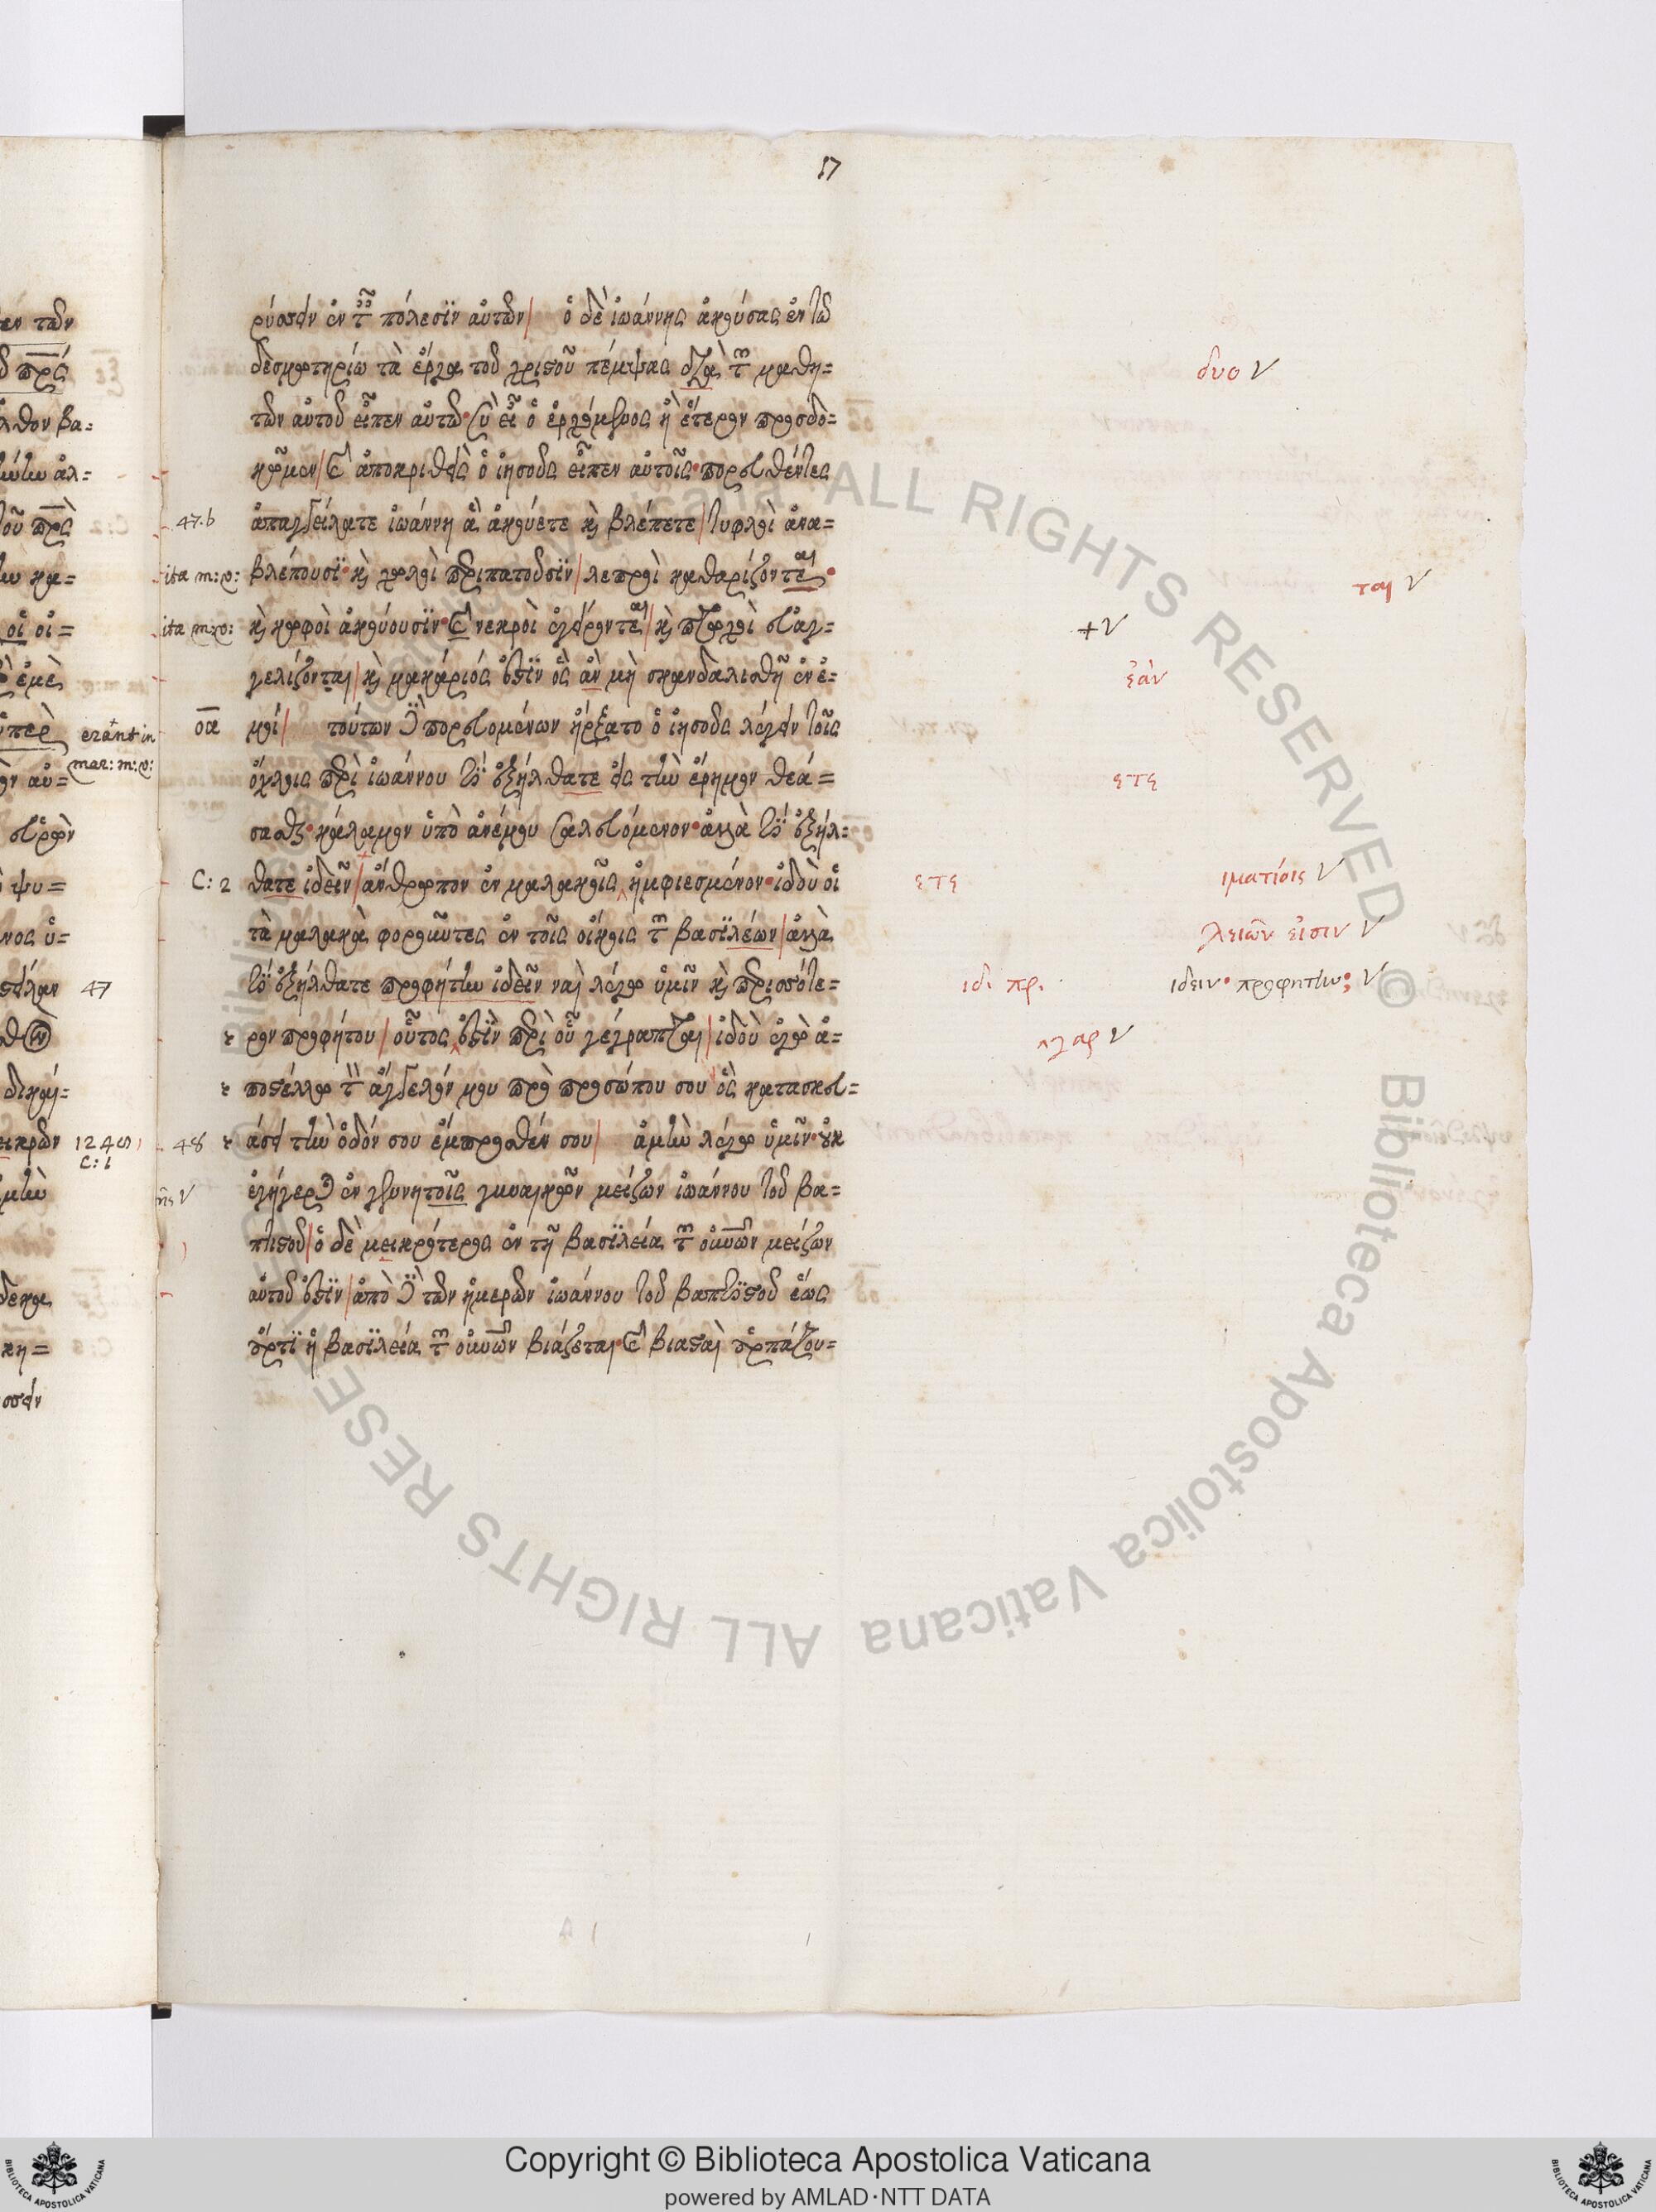 17
ρύσσειν ἐν τ(αῖς) πόλεσϊν αὐτῶν / ὁ δὲ ἰωάννης ἀκούσας ἐν τῶ
δεσμωτηρίω τὰ ἔργα τοῦ χριστοῦ πέμψας διὰ τ(ῶν) μαθη=
δυο V
τῶν αὐτοῦ εἶπεν αὐτῶ· σὺ εἶ ὁ ἐρχόμενος ἢ ἕτερον προσδο=
κῶμεν / καὶ ἀποκριθεὶς ὁ ἰησοῦς εἶπεν αὐτοῖς· πορευθέντες
47.b ἀπαγγείλατε ἰωάννη ἃ ἀκούετε κ(αὶ) βλέπετε / τυφλοὶ ἀνα=
ita m:o: βλέπουσϊ· κ(αὶ) χωλοὶ περιπατοῦσϊν / λεπροὶ καθαρίζοντε ·
ται V
ita m:o: κ(αὶ) κωφοὶ ἀκούουσϊν· καὶ νεκροὶ ἐγείροντε / κ(αὶ) πτωχοὶ εὐαγ=
+ V
γελίζονται / κ(αὶ) μακάριός ἐστϊν ὃς ἂν μὴ σκανδαλισθῆ ἐν ἐ=
ἐάν
οα μοί / τούτων δὲ πορευομένων ἤρξατο ὁ ἰησοῦς λέγειν τοῖς
ὄχλοις περὶ ἰωάννου τί ἐξήλθατε εἰς τὴν ἔρημον θεά=
ετε
σασθαι· κάλαμον ὑπὸ ἀνέμου σαλευόμενον· ἀλλὰ τί ἐξήλ=
C: 2 θατε ἰδεῖν / ἄνθρωπον ἐν μαλακοῖς ἠμφιεσμένον· ἰδοὺ οἱ
ετε ιματίοις V
τὰ μαλακὰ φοροῦντες ἐν τοῖς οἴκοις τ(ῶν) βασϊλέων / ἀλλὰ
λειῶν εἰσιν V
τί ἐξήλθατε προφήτην ἰδεῖν ναὶ λέγω ὑμῖν κ(αὶ) περισσότε=
ιδι πρι. ιδειν· προφητην; V
ρον προφήτου / οὗτος ἐστϊν περὶ οὗ γέγραπται / ἰδοὺ ἐγὼ ἀ=
γαρ V
ποστέλλω τ(ὸν) ἄγγελόν μου πρὸ προσώπου σου ὃς κατασκευ=
48 άσει τὴν ὁδόν σου ἔμπροσθέν σου / ἀμὴν λέγω ὑμῖν· οὐκ
ἐγήγερται ἐν γεννητοῖς γυναικῶν μείζων ἰωάννου τοῦ βα=
πτιστοῦ / ὁ δὲ μεικρότερος ἐν τῆ βασϊλεία τ(ῶν) οὐνῶν μείζων
αὐτοῦ ἐστϊν / ἀπὸ δὲ τῶν ἡμερῶν ἰωάννου τοῦ βαπτϊστοῦ ἕως
ἄρτϊ ἡ βασϊλεία τ(ῶν) οὐνῶν βιάζεται· καὶ βιασταὶ ἁρπάζου=
εν τῶν
47
1245
C: 1
Copyright © Biblioteca Apostolica Vaticana
powered by AMLAD·NTT DATA
ALL RIGHTS RESERVED © Biblioteca Apostolica Vaticana
BIBLIOTECA APOSTOLICA VATICANA
BIBLIOTECA APOSTOLICA VATICANA